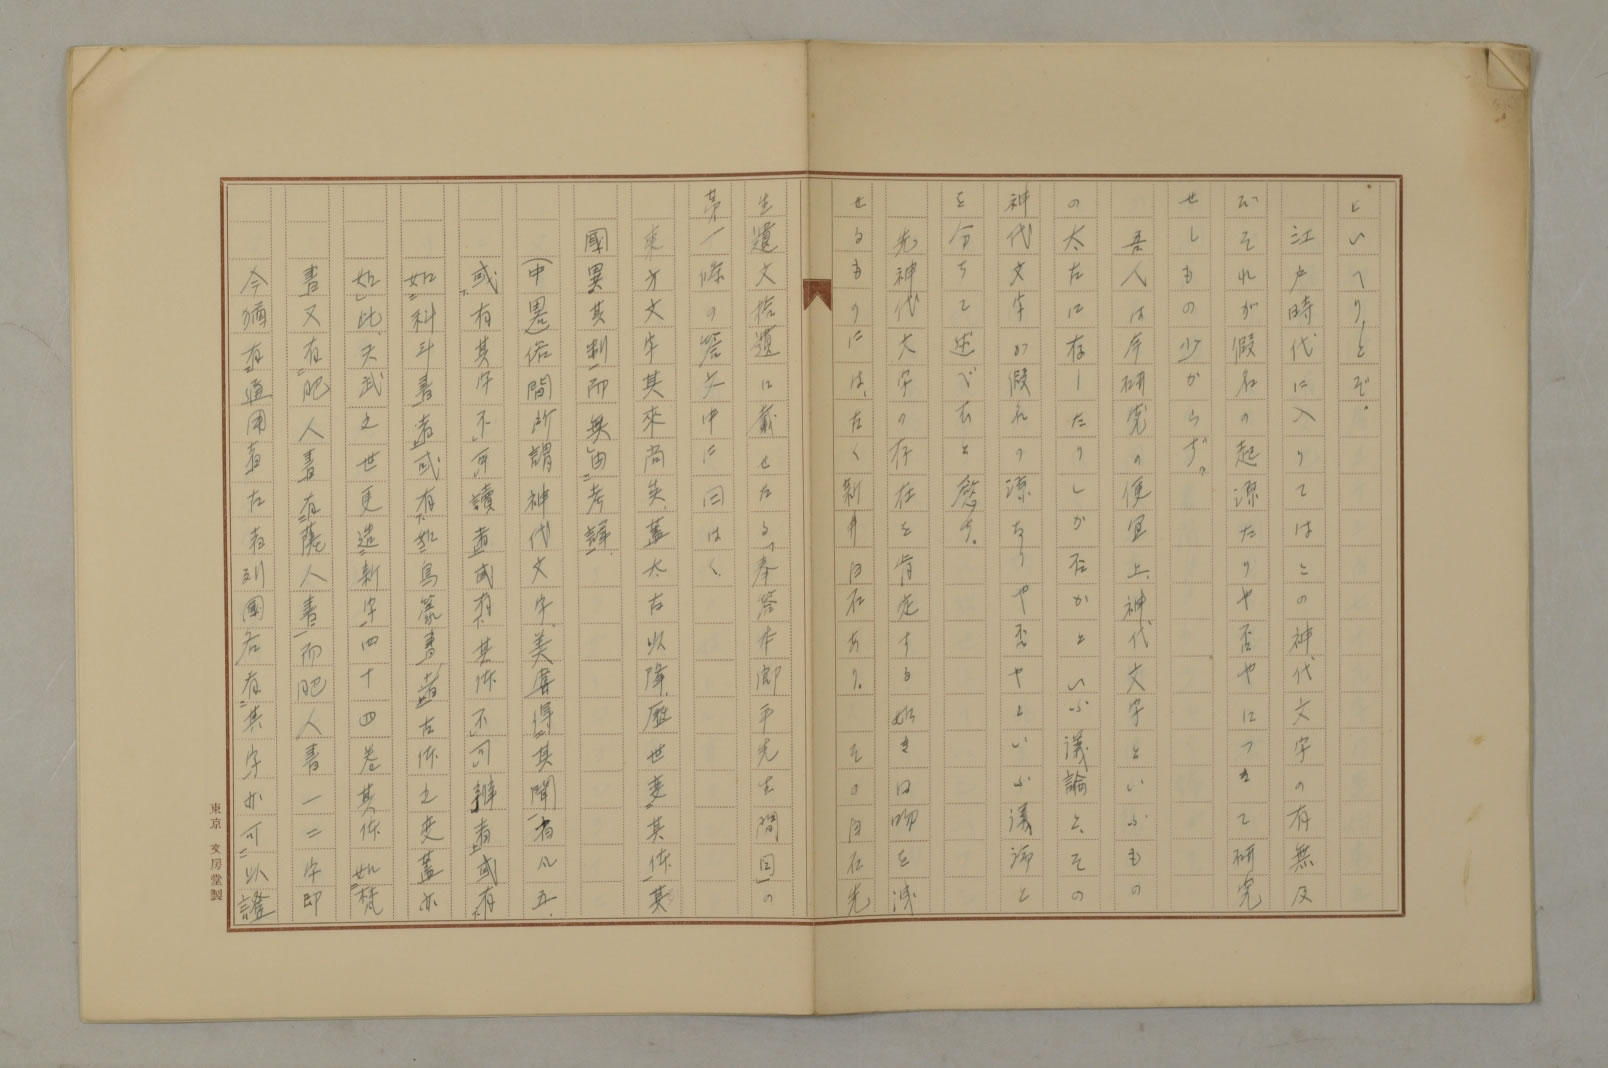 といへり」とぞ。
江戸時代に入りてはこの神代文字の有無及
びそれが假名の起源たりや否やにつきて研究
せしもの少からず。
吾人は今研究の便宜上、神代文字といふもの
の太古に存したりしか否かといふ議論と、その
神代文字が假名の源なりや否やといふ議論と
を分ちて述べむと慾す。
先神代文字の存在を肯定する如き口吻を洩
せるものには、古く新井白石あり。その白石先
生遺文拾遺に載せたる「奉答作郎平先生問目」の
第一條の答文中に曰はく、
東方文字其來尚矣、蓋太古以降、歴世変其体、其
國異其制、而無由考詳、
(中畧)俗間所謂神代文字、美嘗得其聞者凡五、
或有其字不可讀者、或有其体不可辨者、或有
如科斗書者、或有如鳥篆書者、古体之変蓋亦
如此、天武之世更造新字四十四卷其体如梵
書又有肥人書有薩人書、而肥人書一二字即
今猶有通用者、古者列國各有其字亦可以證
東京 文房堂製